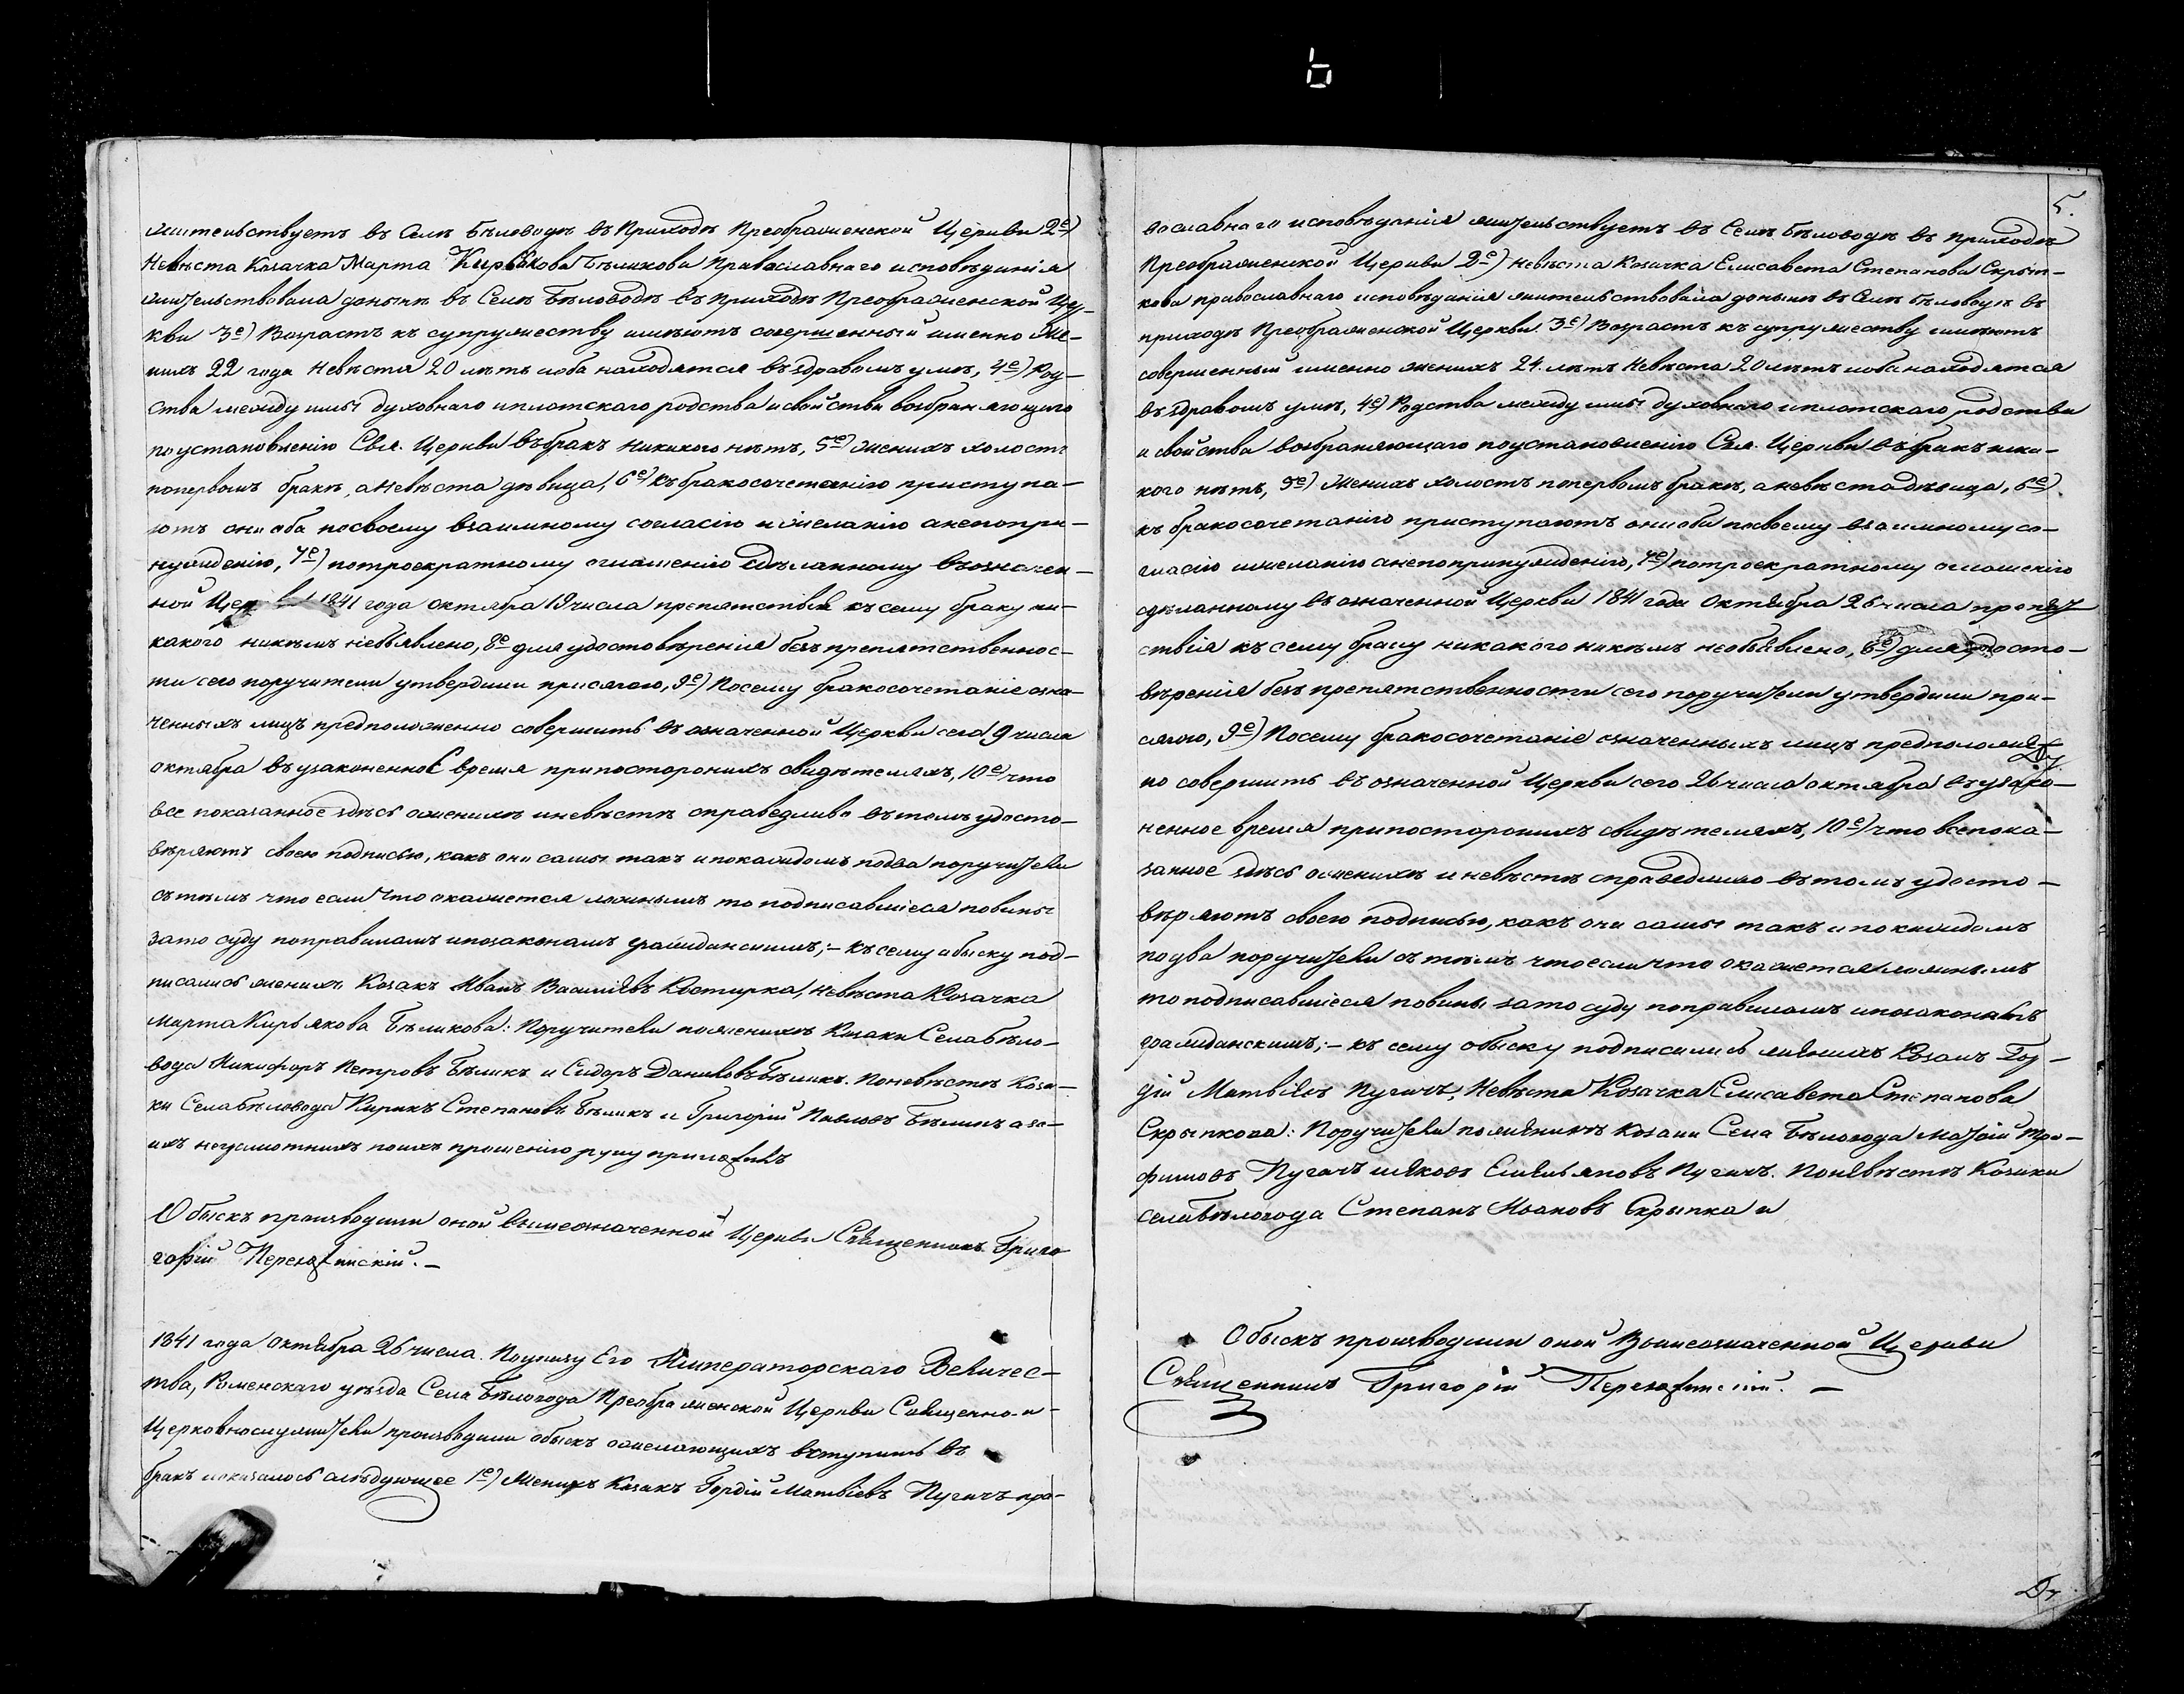 жительствуетъ въ Селѣ Бѣловодѣ въ Приходѣ Преображенской Церкви 2е)
Невѣста Козачка Марта Кирьякова Бѣликова Православнаго исповѣданія
жительствовала донынѣ въ Селѣ Бѣловодѣ въ Приходѣ Преображенской Цер-
кви 3е) Возрастъ къ супружеству имѣютъ совершенный именно Же-
нихъ 22 года Невѣста 20 лѣтъ иоба находятся въ здравомъ умѣ, 4е) Род-
ства между ими духовнаго иплотскаго родства исвойства возбраняющаго
поустановленію Свя. Церкви въбракъ никакого нѣтъ, 5е) Женихъ холостъ
попервомъ бракѣ, аневѣста дѣвица, 6е) къ бракосочетанію приступа-
ютъ они оба посвоему взаимному согласію ижеланію анепопри-
нужденію, 7е) потроекратному оглашенію здѣланному въозначен-
ной Церкви 1841 года октября 19 числа препятствія къ сему браку ни-
какого никѣмъ необъявлено, 8е для удостовѣренія безъ препятственнос-
ти сего поручители утвердили присягою, 9е) Посему бракосочетаніе озна-
ченныхъ лицъ предположенно совершить въ означенной Церкви сего 19 числа
октября въ узаконенное время припостороннихъ свидѣтеляхъ, 10е) что
все показанное здѣсь оженихѣ иневѣстѣ справедливо вътомъ удосто-
вѣряютъ своею подписью, какъ они сами такъ ипокаждомъ подва поручители
сътѣмъ что если что окажется ложнымъ то подписавшіеся повины
зато суду поправиламъ ипозаконамъ гражданскимъ; – къ сему обыску под-
писались женихъ Козакъ Иванъ Васильевъ Костирка, невѣста Козачка
Марта Кирьякова Бѣликова: Поручители поженихѣ Козаки Села Бѣло-
вода Никифоръ Петровъ Бѣликъ и Сидоръ Даниловъ Бѣликъ. Поневѣстѣ Коза-
ки Села Бѣловода Кирикъ Степановъ Бѣликъ и Григорій Павловъ Бѣликъ аза-
ихъ неграмотнихъ поихъ прошенію руку приложилъ
Обыскъ производили оной вышеозначенной Церкви Священникъ Григо
горій
1841 года Октября 26 числа. Поуказу Его Императорскаго Величес-
тва, Роменскаго уѣзда Села Бѣловода Преображенской Церкви Священно-и
Церковнослужители производили обыскъ ожелающихъ вступить въ
бракъ иоказалось слѣдующее 1е) Женихъ Козакъ Гордій Матвіевъ Пугачъ пра-
5.
вославнаго исповѣданія жительствуетъ въ Селѣ Бѣловодѣ въ приходѣ
Преображенской Церкви 2е) Невѣста Козачка Елисавета Степанова Скрып-
кова православнаго исповѣданія жительствовала донынѣ въ Селѣ Бѣловодѣ въ
приходѣ Преображенской Церкви. 3е) Возрастъ къ супружеству имѣютъ
совершенный именно женихъ 24. лѣтъ Невѣста 20 лѣтъ иоба находятся
въ здравомъ умѣ, 4е) Родства между ими духовнаго иплотскаго родства
и свойства возбраняющаго поустановленію Свя. Церкви въбракъ ника-
кого нѣтъ, 5е) Женихъ холостъ попервомъ бракѣ, аневѣста дѣвица, 6е)
къ бракосочетанію приступаютъ они оба посвоему взаимному со-
гласію ижеланію анепопринужденію, 7е) потроекратному оглашенію
сдѣланному въ означенной Церкви 1841 года Октября 26 числа препят-
ствія къ сему браку никакого никѣмъ необъявлено, 8е) для удосто-
вѣренія безъ препятственности сего поручители утвердили при-
сягою, 9е) Посему бракосочетаніе означенныхъ лицъ предположен-
но совершить въ означенной Церкви сего 26 числа октября въ узако-
ненное время припостороннихъ свидѣтеляхъ, 10е) что все пока-
занное здѣсь оженихѣ и невѣстѣ справедливо вътомъ удосто-
вѣряютъ своею подписью, какъ они сами такъ и покаждомъ
подва поручители сътѣмъ что если что окажется ложнымъ
то подписавшіеся повины зато суду поправиламъ ипозаконамъ
гражданскимъ; – къ сему обыску подписались женихъ Козакъ Гор-
дій Матвіевъ Пугачъ, Невѣста Козачка Елисавета Степанова
Скрыпкова: Поручители поженихѣ Козаки Села Бѣловода Матвій Тро-
фимовъ Пугачъ иЯковъ Емельяновъ Пугачъ. Поневѣстѣ Козаки
села Бѣловода Степанъ Ивановъ Скрыпка и
Обыскъ производили оной Вышеозначенной Церкви
Священникъ Григорій